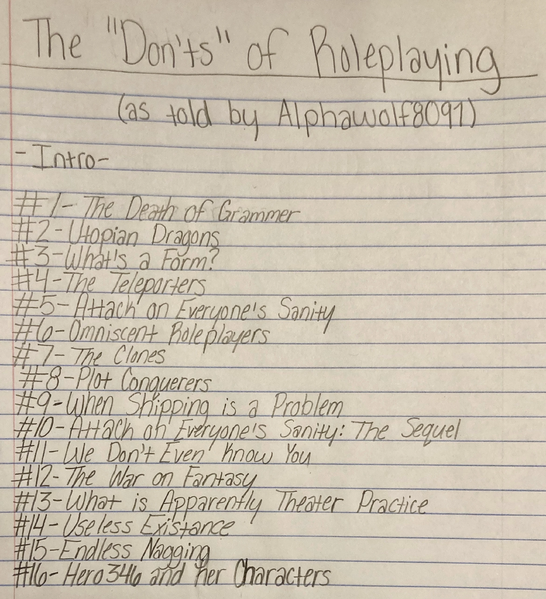 The "Don'ts" of Roleplaying
(as told by Alphawolf8091)
-Intro-
#1- The Death of Grammer
#2-Utopian Dragons
#3-What's a Form?
#4-The Teleporters
#5-Attack on Everyone's Sanity
#6-Omniscent Roleplayers
#7-The Clones
#8-Plot Conquerers
#9-When Shipping is a Problem
#10-Attack on Everyone's Sanity: The Sequel
#11-We Don't Even Know You
#12-The War on Fantasy
#13-What is Apparently Theater Practice
#14-Useless Existance
#15-Endless Nagging
#16-Hero346 and her Characters